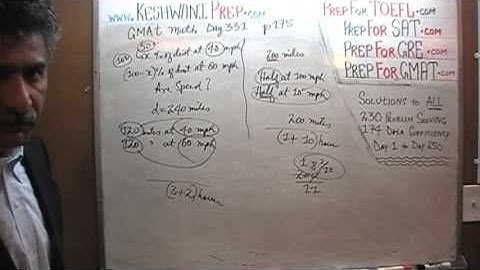 www.KESHWANIPREP.com
GMAT Math Day 331 P 175
50
100 x % of dist at 40 mph
(100-x)% of dist at 60 mph
Ave Speed?
d=240 miles
120 miles at 40 mph
120 " at 60 mph
(3+2) hours
200 miles
Half at 100 mph
Half at 10 mph
200 miles
(1+10) hours
18 2/11
200
11
PREPFORTOEFL.com
PREPFORSAT.com
PREPFORGRE.com
PREPFORGMAT.com
SOLUTIONS TO ALL
230 PROBLEM SOLVING
174 DATA SUFFICIENCY
DAY 1 to DAY 250